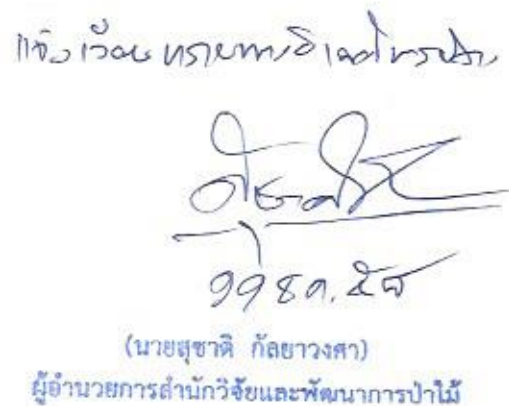 แจ้งเวียน ทราบทาง
๑๑ ธ.ค. ๕๘
(นายสุชาติ กัลยาวงศา)
ผู้อำนวยการสำนักวิจัยและพัฒนาการป่าไม้